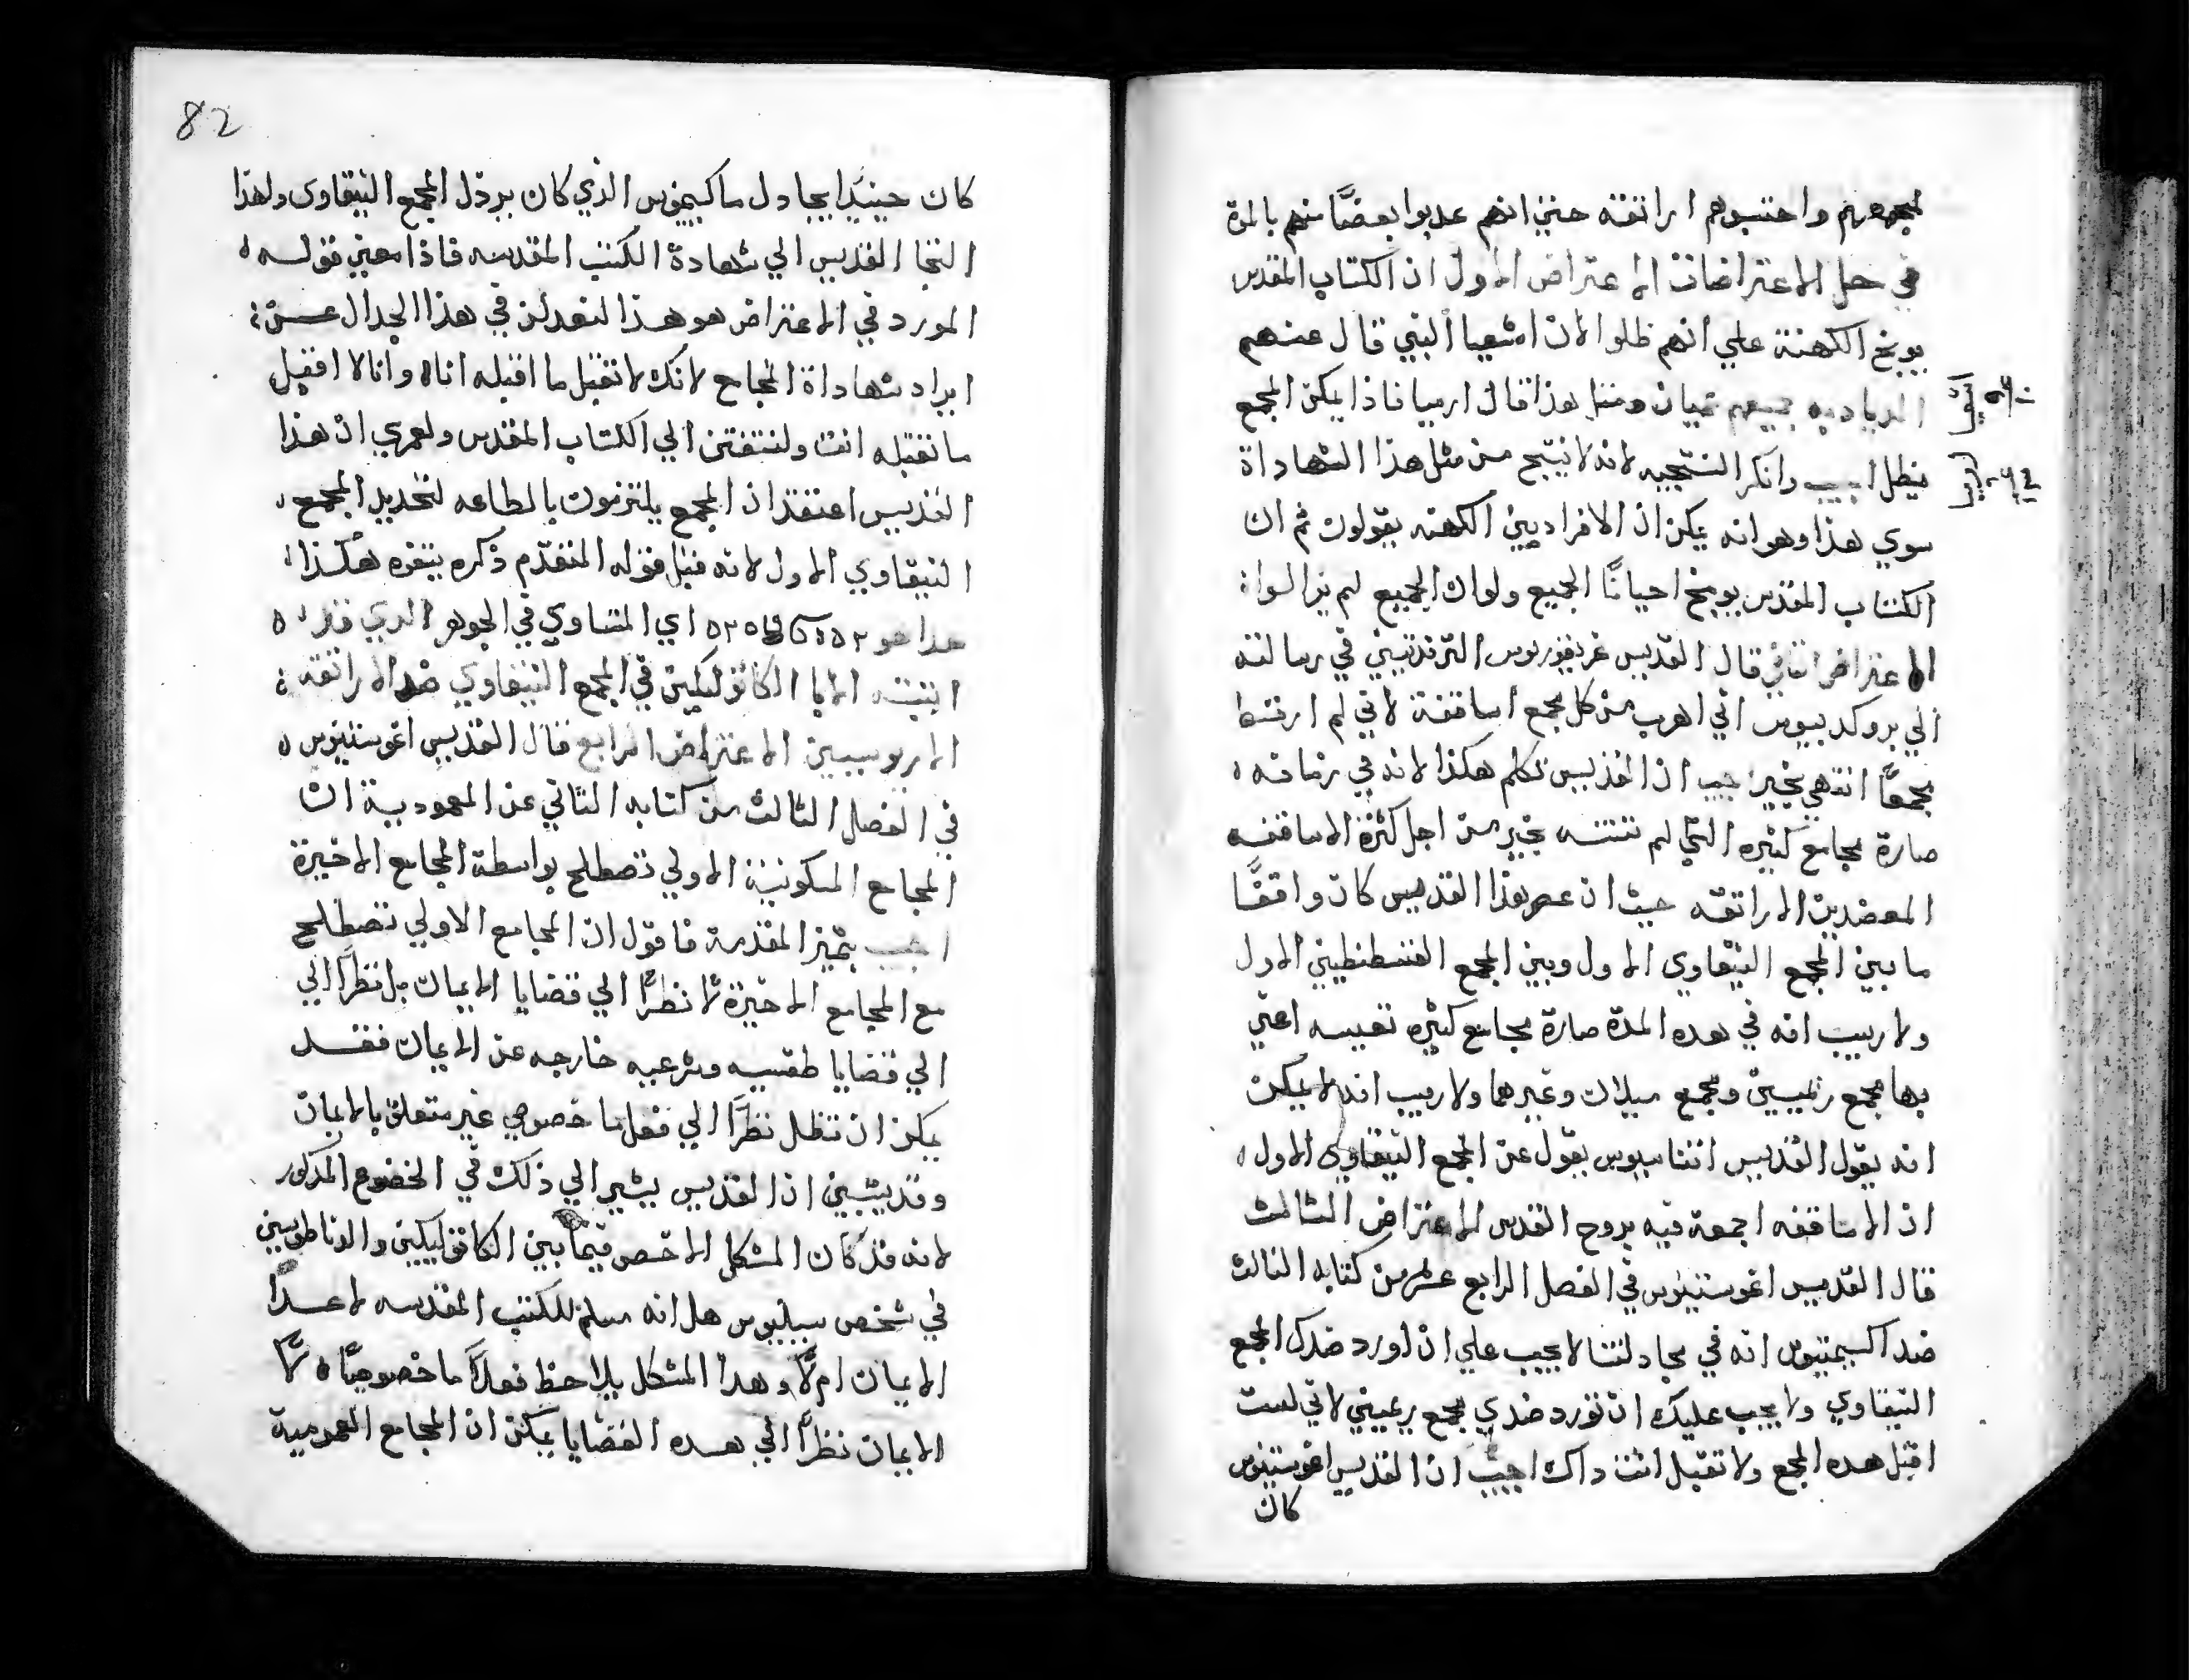 لمجمعهم واحتسبوهم اراتقه حتي انهم عدبوا بعضًا منهم بالمرة
في حل الاعتراضات الاعتراض الاول ان الكتاب المقدس
يوبخ الكهنة علي انهم ظلوا لان اشعيا النبي قال عنهم
جميعهم عميان ومثل هذا قال ارميا فاذا يمكن المجمع
يظل اجيب وانكر النتيجيه لانه لا ينتج من مثل هذا الشهاداة
سوي هذا وهو انه يمكن ان الافراد بين الكهنه يقولون ثم ان
الكتاب المقدس يوبخ احيانًا الجميع ولو ان الجميع لم يزالوا
الاعتراض الثاني قال القديس غريغوريوس النزينزي في رسالته
الي بروكدبيوس اني اهرب من كل مجمع اساقفة لاني لم ار قط
مجمعًا انتهي بخير اجيب ان القديس تكلم هكذا لانه في زمانه
صارة مجامع كثيره التي لم تنته بخير من اجل كثرة الاساقفه
المعضدين الاراتقه حيث ان عصر هذا القديس كان واقفًا
ما بين المجمع النيقاوي الاول وبين المجمع القسطنطيني الاول
ولا ريب انه في هده المدة صارة مجامع كثيره تعيسه اعني
بها مجمع ريميسين ومجمع ميلان وغيرهما ولا ريب انه لا يمكن
انه يقول القديس اتناسيوس يقول عن المجمع النيقاوي الاول
ان الاساقفه اجمعة فيه بروح القدس الاعتراض الثالث
قال القديس اغوستينوس في الفصل الرابع عشر من كتابه الثالث
ضد اكسيمنيوس انه في مجادلتنا لا يجب علي ان اورد ضدك المجمع
النيقاوي ولا يجب عليك ان تورد ضدي مجمع ريميني لاني لست
اقبل هده المجمع ولا تقبل انت داك اجيب ان القديس اغوستينوس
كان
82
كان حينيدًا يجادل ماكيمنوس الذي كان يردل المجمع النيقاوي ولهذا
التجا القديس الي شهادة الكتب المقدسه فاذا معني قوله
المورد في الاعتراض هو هذا لنعدلن في هذا الجدال عن
ايراد شهاداة المجامع لانك لا تقبل ما اقبله انا وانا لا اقبل
ما تقبله انت ولنتفتن الي الكتاب المقدس ولعمري ان هذا
القديس اعتقد ان المجمع يلتزمون بالطاعه لتحديد المجمع
النيقاوي الاول لانه قبل قوله المتقدم ذكره يتفوه هكذا
هدا هو اي المتساوي في الجوهر الدي قد
اثبته الابا الكاتوليكين في المجمع النيقاوي ضد الاراتقه
الاريوسيين الاعتراض الرابع قال القديس اغوستينوس
في الفصل الثالث من كتابه الثاني عن المعمودية ان
المجامع المسكونية الاولي تصطلح بواسطة المجامع الاخيرة
اجيب بتميز المقدمة فاقول ان المجامع الاولي تصطلح
مع المجامع الاخيرة لا نظرًا الي قضايا الايمان بل نظرًا الي
الي قضايا طقسيه وشرعيه خارجه عن الايمان فقد
يمكن ان تظل نظرًا الي فعل ما خصوصي غير متعلق بالايمان
وقد يتبين ان القديس يشير الي ذلك في الخضوع المدكور
لانه قد كان المشكل الاخص فيما بين الكاتوليكين والدناطوسين
في شخص سيليوس هل انه سلم للكتب المقدسه لاعدا
الايمان ام لا وهدا المشكل يلاحظ فعلاً ما خصوصيًا لا
الايمان نظرًا الي هده القضايا يمكن ان المجامع العمومية